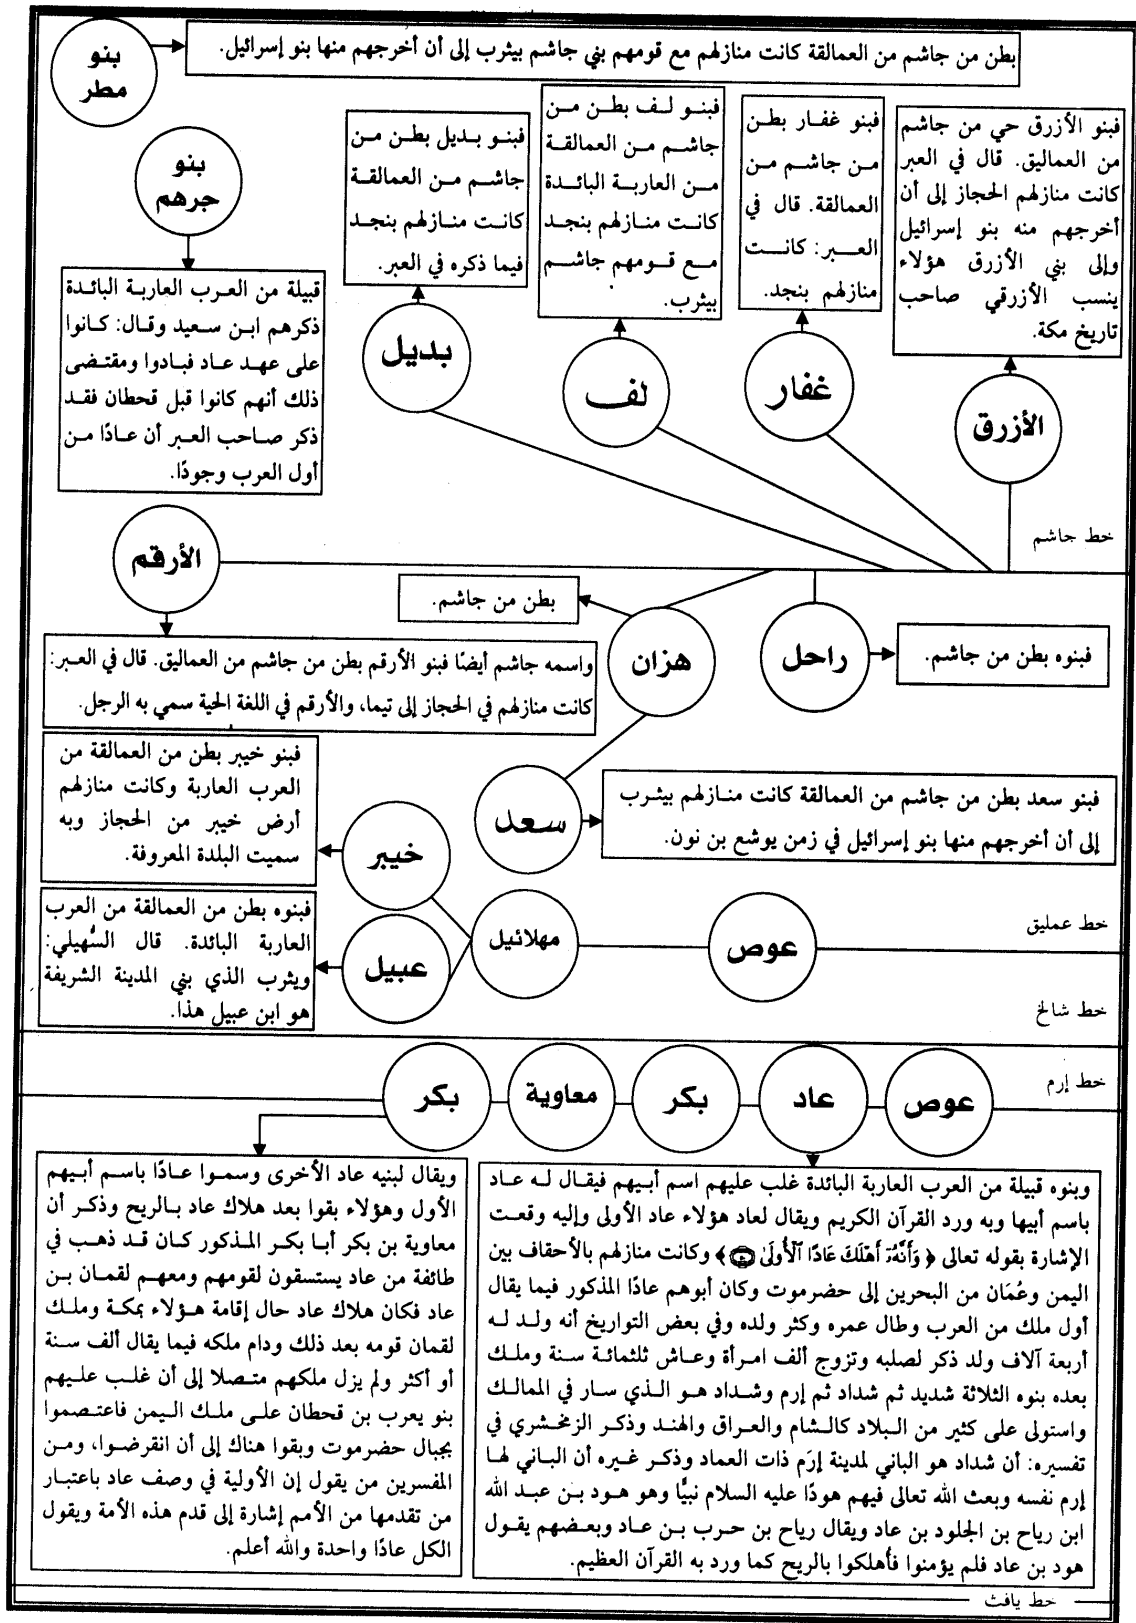 بنو
مطر
بطن من جاشم من العمالقة كانت منازلهم مع قومهم بني جاشم بيثرب إلى أن أخرجهم منها بنو إسرائيل.
فبنو الأزرق حي من جاشم
من العماليق. قال في العبر
كانت منازلهم الحجاز إلى أن
أخرجهم منه بنو إسرائيل
وإلى بني الأزرق هؤلاء
ينسب الأزرقي صاحب
تاريخ مكة.
فبنو غفار بطن
من جاشم من
العمالقة. قال في
العبر: كانت
منازلهم بنجد.
فبنو لف بطن من
جاشم من العمالقة
من العاربة البائدة
كانت منازلهم بنجد
مع قومهم جاشم
بيثرب.
فبنو بديل بطن من
جاشم من العمالقة
كانت منازلهم بنجد
فيما ذكره في العبر.
بنو
جرهم
قبيلة من العرب العاربة البائدة
ذكرهم ابن سعيد وقال: كانوا
على عهد عاد فبادوا ومقتضى
ذلك أنهم كانوا قبل قحطان فقد
ذكر صاحب العبر أن عادًا من
أول العرب وجودًا.
الأزرق
غفار
لف
بديل
خط جاشم
الأرقم
بطن من جاشم.
هزان
راحل
فبنوه بطن من جاشم.
واسمه جاشم أيضًا فبنو الأرقم بطن من جاشم من العماليق. قال في العبر:
كانت منازلهم في الحجاز إلى تيما، والأرقم في اللغة الحية سمي به الرجل.
سعد
فبنو سعد بطن من جاشم من العمالقة كانت منازلهم بيثرب
إلى أن أخرجهم منها بنو إسرائيل في زمن يوشع بن نون.
فبنو خيبر بطن من العمالقة من
العرب العاربة وكانت منازلهم
أرض خيبر من الحجاز وبه
سميت البلدة المعروفة.
خيبر
خط عمليق
عوص
مهلائيل
عبيل
فبنوه بطن من العمالقة من العرب
العاربة البائدة. قال السُّهيلي:
ويثرب الذي بني المدينة الشريفة
هو ابن عبيل هذا.
خط شالخ
خط إرم
عوص
عاد
بكر
معاوية
بكر
وبنوه قبيلة من العرب العاربة البائدة غلب عليهم اسم أبيهم فيقال له عاد
باسم أبيها وبه ورد القرآن الكريم ويقال لعاد هؤلاء عاد الأولى وإليه وقعت
الإشارة بقوله تعالى ﴿ وَأَنَّهُۥٓ أَهْلَكَ عَادًا ٱلْأُولَىٰ ﴾ وكانت منازلهم بالأحقاف بين
اليمن وعُمَان من البحرين إلى حضرموت وكان أبوهم عادًا المذكور فيما يقال
أول ملك من العرب وطال عمره وكثر ولده وفي بعض التواريخ أنه ولد له
أربعة آلاف ولد ذكر لصلبه وتزوج ألف امرأة وعاش ثلثمائة سنة وملك
بعده بنوه الثلاثة شديد ثم شداد ثم إرم وشداد هو الذي سار في الممالك
واستولى على كثير من البلاد كالشام والعراق والهند وذكر الزمخشري في
تفسيره: أن شداد هو الباني لمدينة إرَم ذات العماد وذكر غيره أن الباني لها
إرم نفسه وبعث الله تعالى فيهم هودًا عليه السلام نبيًّا وهو هود بن عبد الله
ابن رياح بن الجلود بن عاد ويقال رياح بن حرب بن عاد وبعضهم يقول
هود بن عاد فلم يؤمنوا فأهلكوا بالريح كما ورد به القرآن العظيم.
ويقال لبنيه عاد الأخرى وسموا عادًا باسم أبيهم
الأول وهؤلاء بقوا بعد هلاك عاد بالريح وذكر أن
معاوية بن بكر أبا بكر المذكور كان قد ذهب في
طائفة من عاد يستسقون لقومهم ومعهم لقمان بن
عاد فكان هلاك عاد حال إقامة هؤلاء بمكة وملك
لقمان قومه بعد ذلك ودام ملكه فيما يقال ألف سنة
أو أكثر ولم يزل ملكهم متصلا إلى أن غلب عليهم
بنو يعرب بن قحطان على ملك اليمن فاعتصموا
بجبال حضرموت وبقوا هناك إلى أن انقرضوا، ومن
المفسرين من يقول إن الأولية في وصف عاد باعتبار
من تقدمها من الأمم إشارة إلى قدم هذه الأمة ويقول
الكل عادًا واحدة والله أعلم.
خط يافث